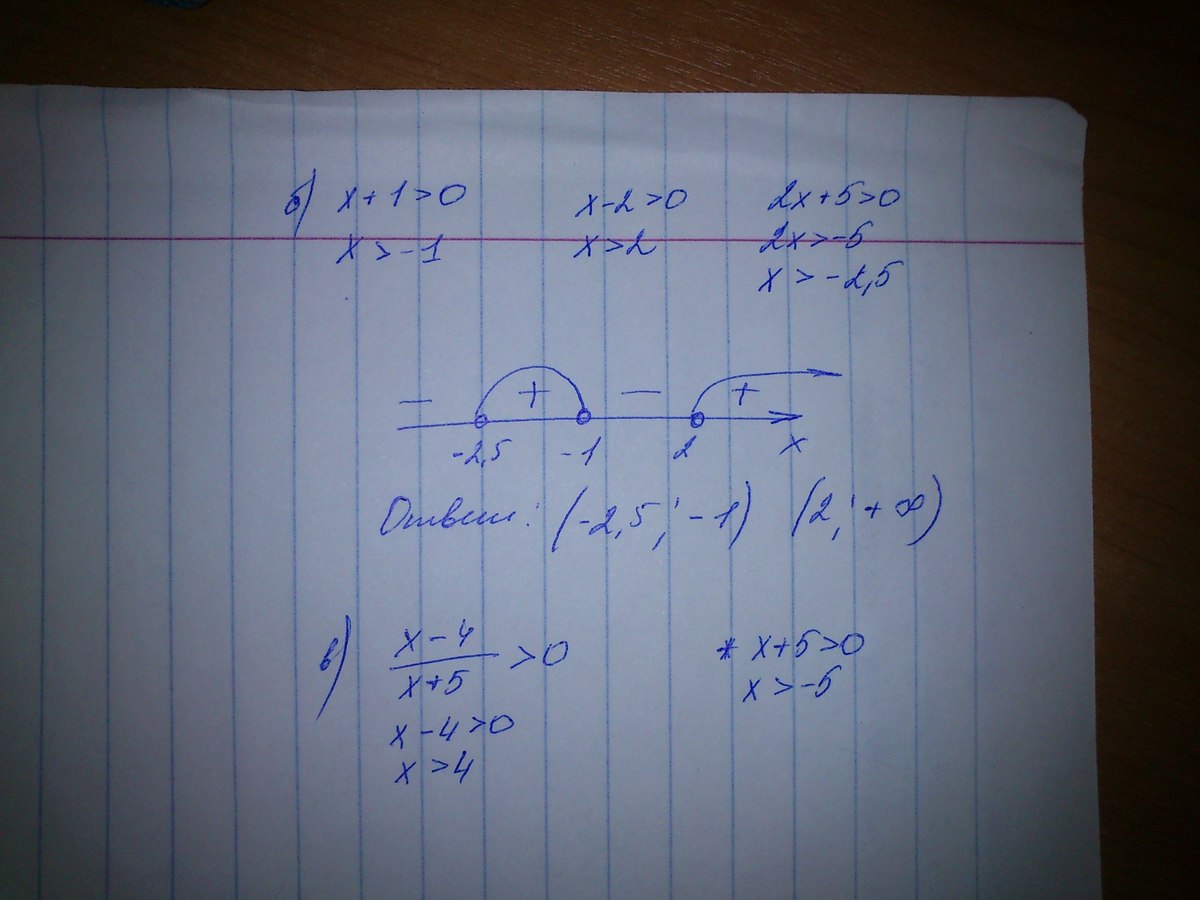 б) x+1>0 x-2>0 2x+5>0
x>-1 x>2 2x>-5
x>-2,5
− + − +
-2,5 -1 2 x
Ответ: (-2,5; -1) (2; +∞)
в) (x-4)/(x+5) >0 * x+5>0
x>-5
x-4>0
x>4